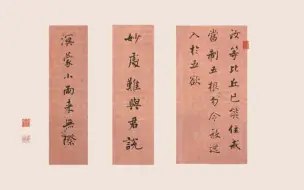 汝等比丘已能住戒
當制五根勿令放逸
入於五欲
妙處難與君說
溟濛小雨來無際